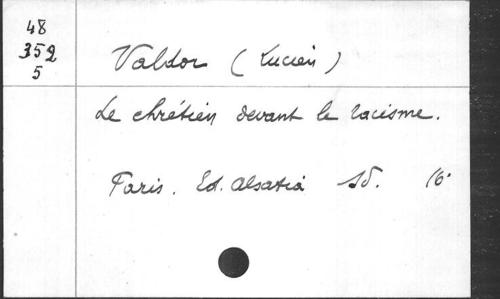 48
352
5
Valdor (Lucien)
Le chrétien devant le racisme.
Paris. Ed. Alsatia sd. 16°